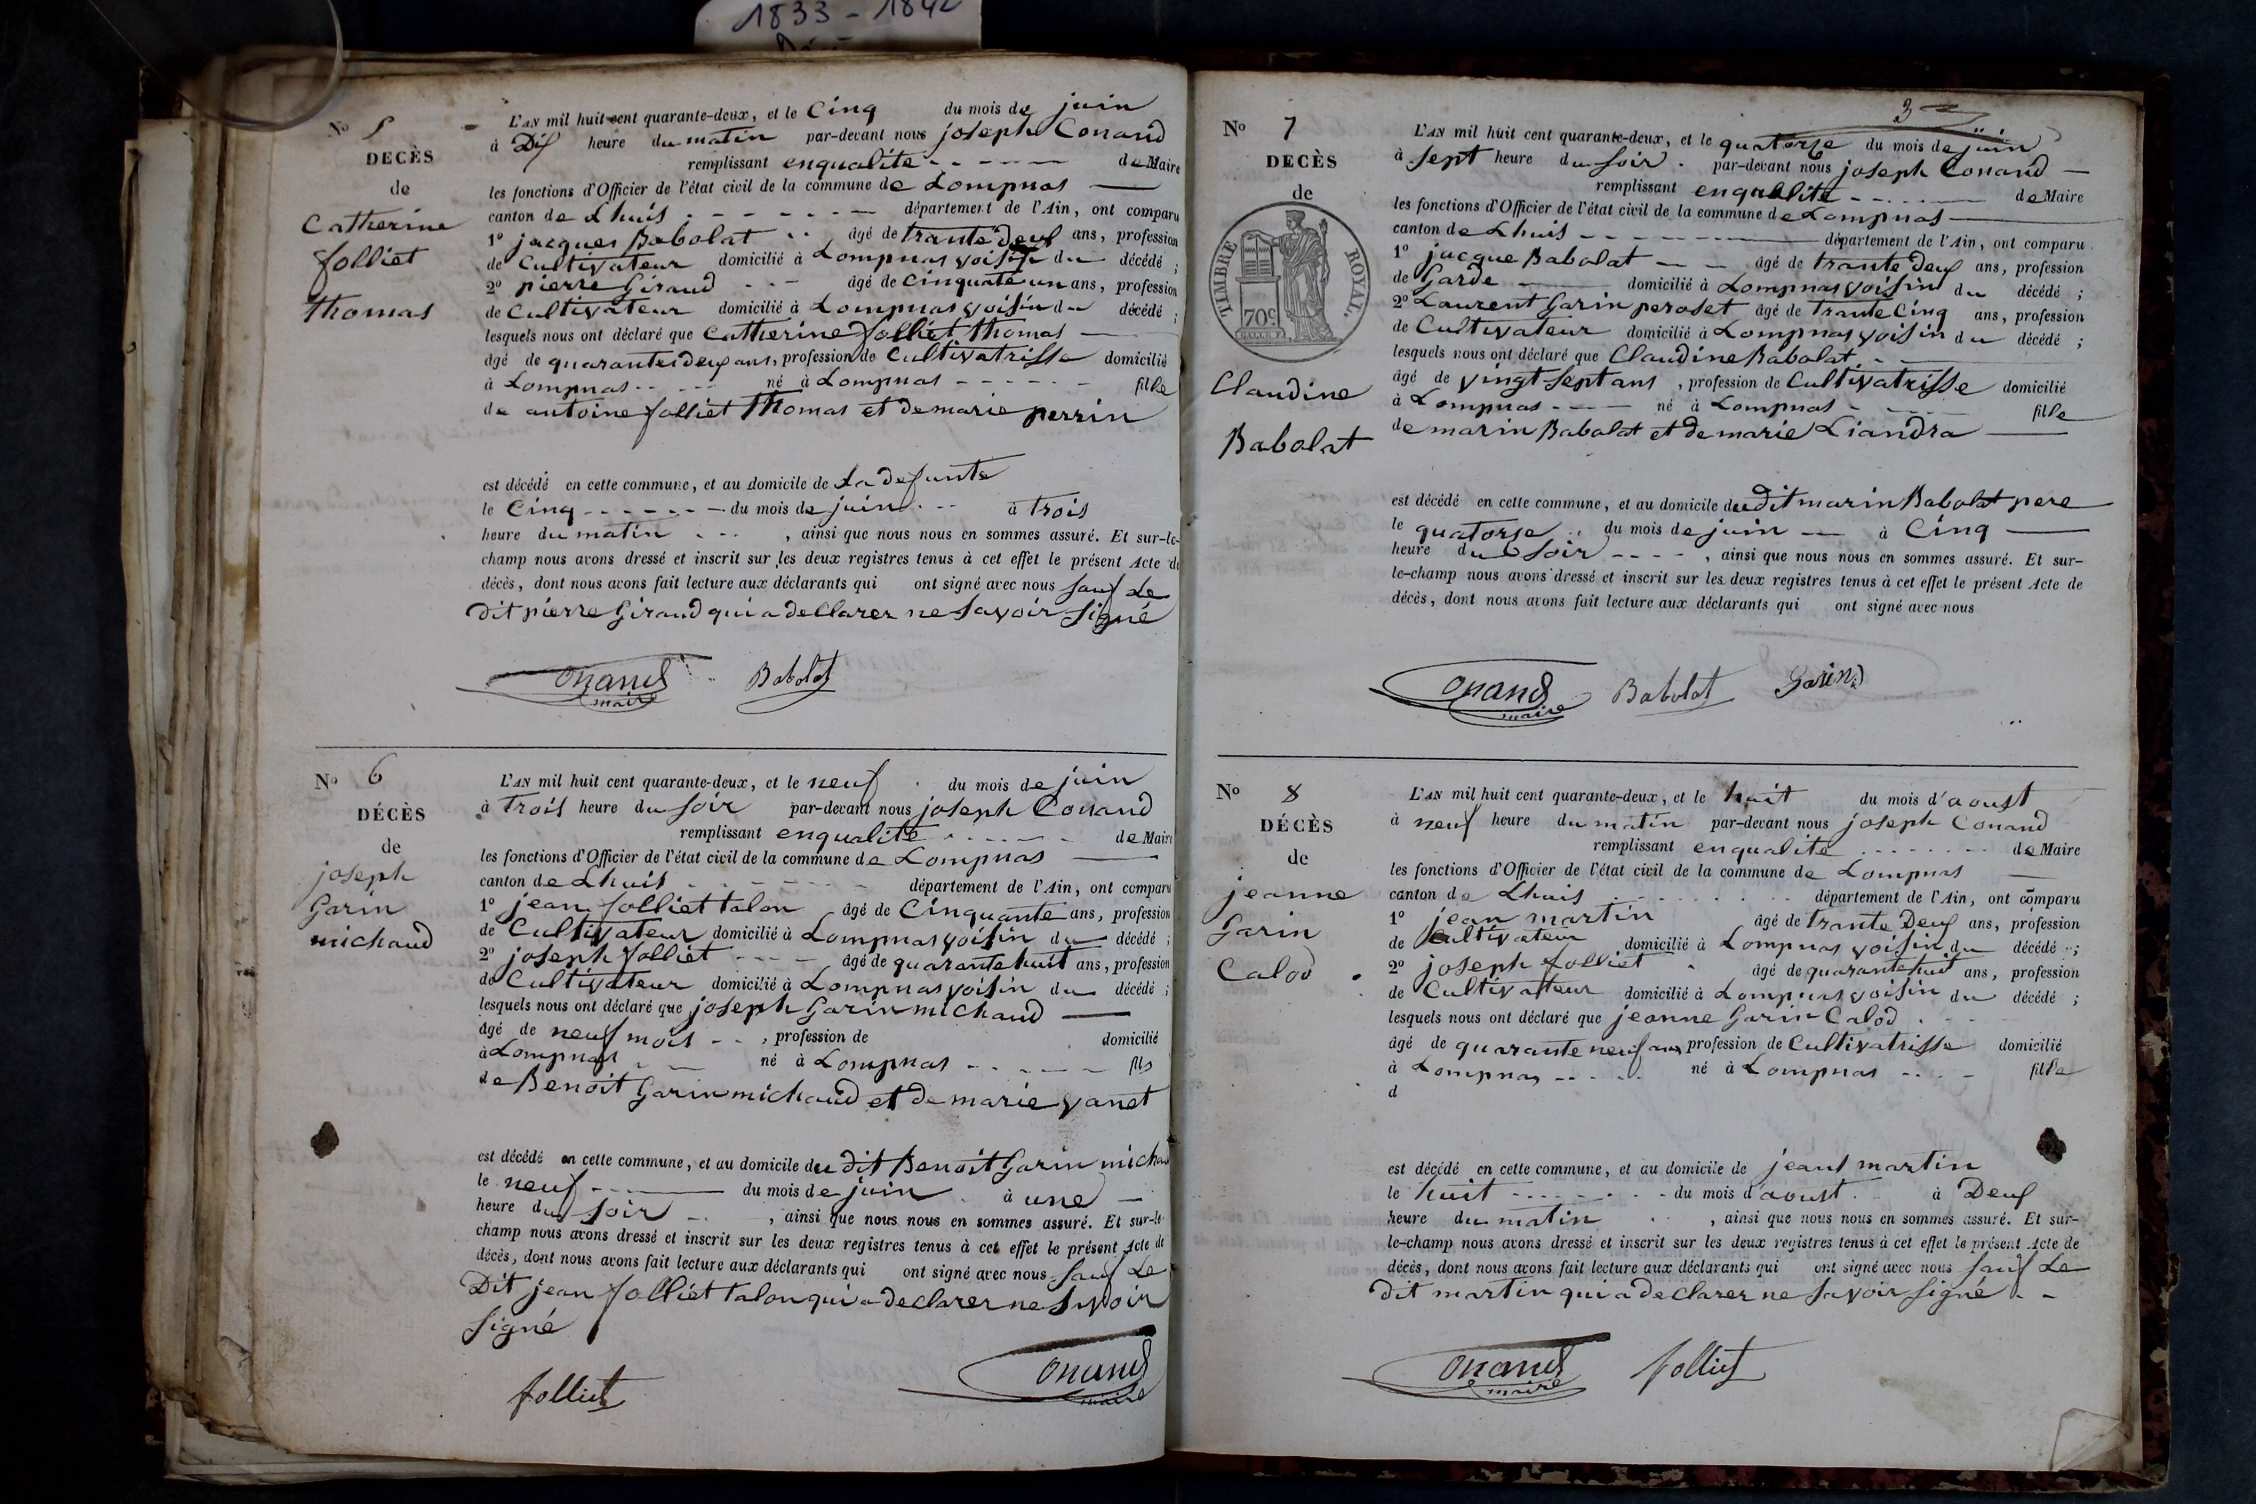 1833 - 1842
No 5
DECÈS
de
Catherine
folliet
thomas
L'AN mil huit cent quarante-deux, et le Cinq du mois de juin
à Dix heure du matin par-devant nous joseph Conand
remplissant enqualité de Maire
les fonctions d'Officier de l'état civil de la commune de Lompnas
canton de Lhuis département de l'Ain, ont comparu
1o jacques Babolat âgé de trante deux ans, profession
de Cultivateur domicilié à Lompnas voisin du décédé ;
2o pierre Giraud âgé de Cinquante un ans, profession
de Cultivateur domicilié à Lompnas voisin du décédé ;
lesquels nous ont déclaré que Catherine folliet thomas
âgé de quarantedeux ans, profession de Cultivatrisse domicilié
à Lompnas né à Lompnas fille
de antoine folliet thomas et de marie perrin
est décédé en cette commune, et au domicile de La defunte
le Cinq du mois de juin à trois
heure du matin , ainsi que nous nous en sommes assuré. Et sur-le-
champ nous avons dressé et inscrit sur les deux registres tenus à cet effet le présent Acte de
décès, dont nous avons fait lecture aux déclarants qui ont signé avec nous sauf Le
Dit pierre Giraud qui a declarer ne savoir signé
Conand Babolat
maire
No 6
DÉCÈS
de
joseph
Garin
michaud
L'AN mil huit cent quarante-deux, et le neuf du mois de juin
à trois heure du soir par-devant nous joseph Conand
remplissant enqualité de Maire
les fonctions d'Officier de l'état civil de la commune de Lompnas
canton de Lhuis département de l'Ain, ont comparu
1o jean folliet talon âgé de Cinquante ans, profession
de Cultivateur domicilié à Lompnas voisin du décédé ;
2o joseph folliet âgé de quarante huit ans, profession
de Cultivateur domicilié à Lompnas voisin du décédé ;
lesquels nous ont déclaré que joseph Garin michaud
âgé de neuf mois , profession de domicilié
à Lompnas né à Lompnas fils
de Benoit Garin michaud et de marie vanet
est décédé en cette commune, et au domicile du dit Benoit Garin michau
le neuf du mois de juin à une
heure du soir , ainsi que nous nous en sommes assuré. Et sur-le-
champ nous avons dressé et inscrit sur les deux registres tenus à cet effet le présent Acte de
décès, dont nous avons fait lecture aux déclarants qui ont signé avec nous sauf Le
Dit jean folliet talon qui a declarer ne savoir
signé
folliet Conand
maire
3
No 7
DECÈS
de
TIMBRE ROYAL.
70c
Claudine
Babolat
L'AN mil huit cent quarante-deux, et le quatorse du mois de juin
à sept heure du soir par-devant nous joseph Conand
remplissant enqualité de Maire
les fonctions d'Officier de l'état civil de la commune de Lompnas
canton de Lhuis département de l'Ain, ont comparu
1o jacque Babolat âgé de trante deux ans, profession
de Garde domicilié à Lompnas voisin du décédé ;
2o Laurent Garin peroset âgé de trante Cinq ans, profession
de Cultivateur domicilié à Lompnas voisin du décédé ;
lesquels nous ont déclaré que Claudine Babolat
âgé de vingt sept ans , profession de Cultivatrisse domicilié
à Lompnas né à Lompnas fille
de marin Babolat et de marie Liandra
est décédé en cette commune, et au domicile du dit marin Babolat pere
le quatorse du mois de juin à Cinq
heure du soir , ainsi que nous nous en sommes assuré. Et sur-
le-champ nous avons dressé et inscrit sur les deux registres tenus à cet effet le présent Acte de
décès, dont nous avons fait lecture aux déclarants qui ont signé avec nous
Conand Babolat Garin
maire
No 8
DÉCÈS
de
jeanne
Garin
Calod
L'AN mil huit cent quarante-deux, et le huit du mois d'aoust
à neuf heure du matin par-devant nous joseph Conand
remplissant enqualité de Maire
les fonctions d'Officier de l'état civil de la commune de Lompnas
canton de Lhuis département de l'Ain, ont comparu
1o jean martin âgé de trante Deux ans, profession
de Cultivateur domicilié à Lompnas voisin du décédé ;
2o joseph folliet âgé de quarante huit ans, profession
de Cultivateur domicilié à Lompnas voisin du décédé ;
lesquels nous ont déclaré que jeanne Garin Calod
âgé de quarante neuf ans profession de Cultivatrisse domicilié
à Lompnas né à Lompnas fille
d
est décédé en cette commune, et au domicile de jean martin
le huit du mois d'aoust à Deux
heure du matin , ainsi que nous nous en sommes assuré. Et sur-
le-champ nous avons dressé et inscrit sur les deux registres tenus à cet effet le présent Acte de
décès, dont nous avons fait lecture aux déclarants qui ont signé avec nous sauf Le
dit martin qui a declarer ne savoir signé
Conand folliet
maire